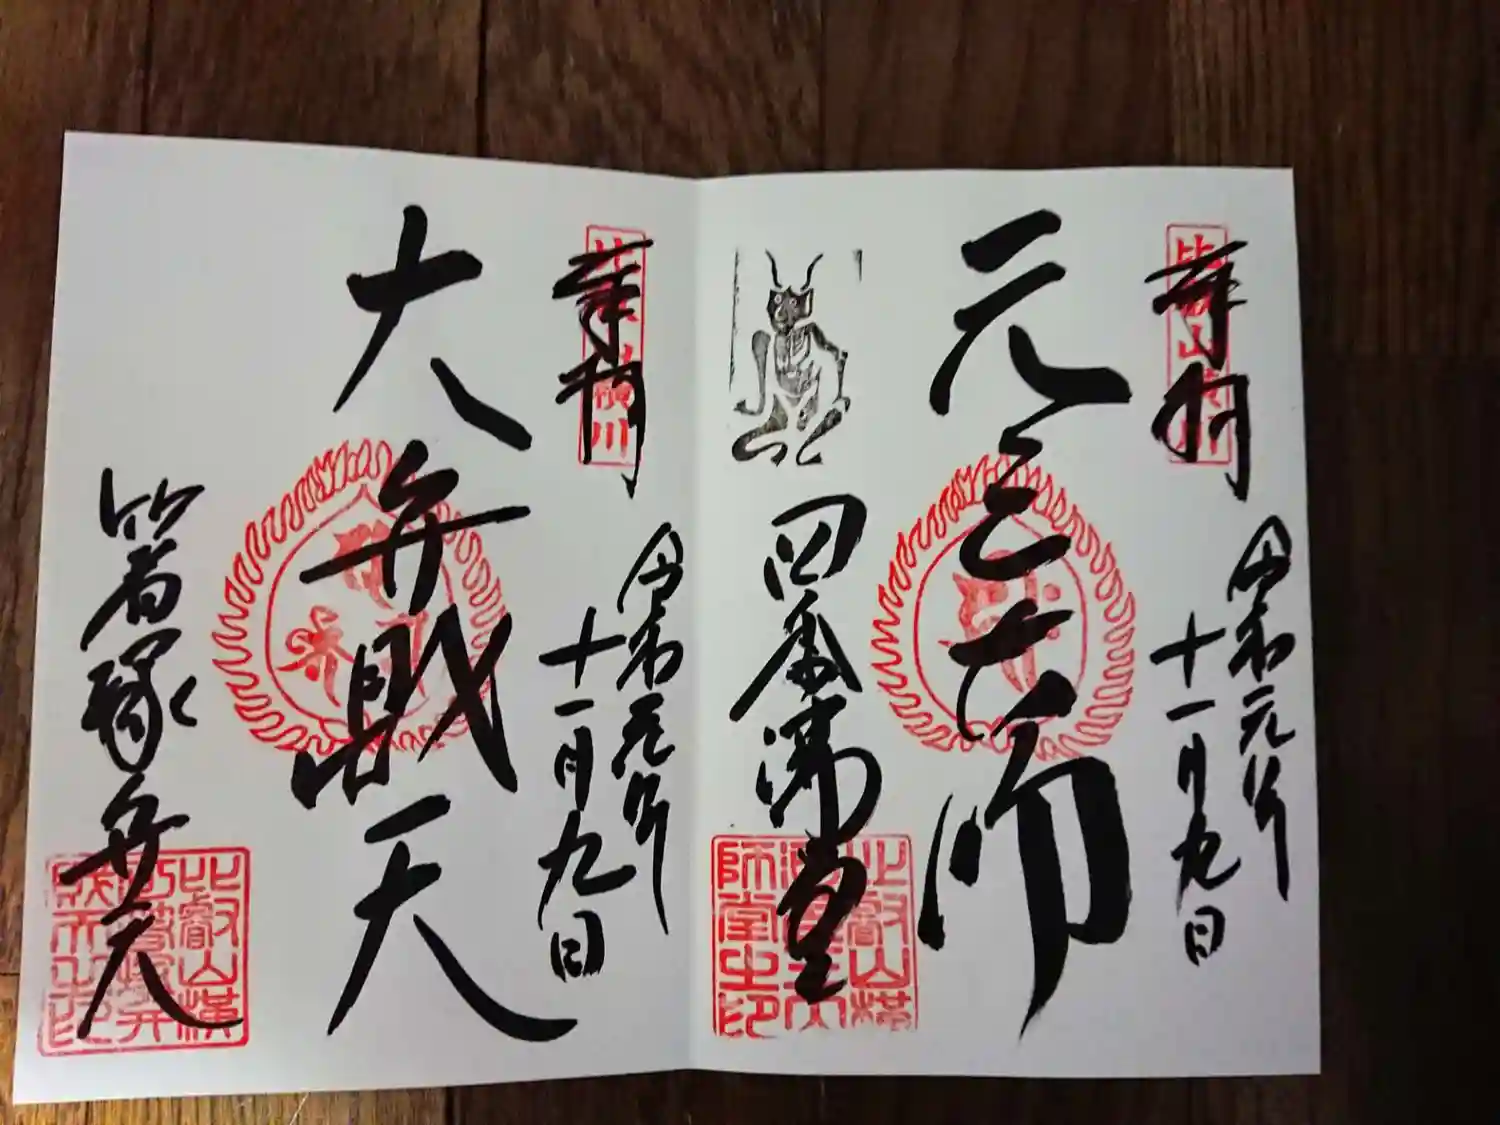 比叡山横川
奉拝
令和元年
十一月九日
元三大師
四季講堂
比叡山横
川元三大
師堂之印
比叡山横川
奉拝
令和元年
十一月九日
大弁財天
箸塚弁天
比叡山横